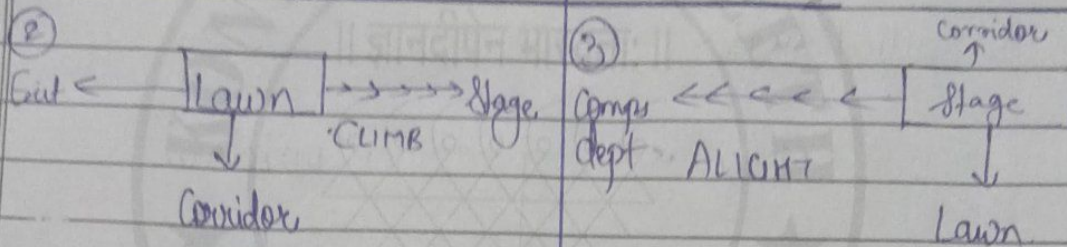 2
Cut ← Lawn →→→→→ Stage
CLIMB
Corridor
3
Corridor
Comps <<<<< Stage
dept ALIGHT
Lawn